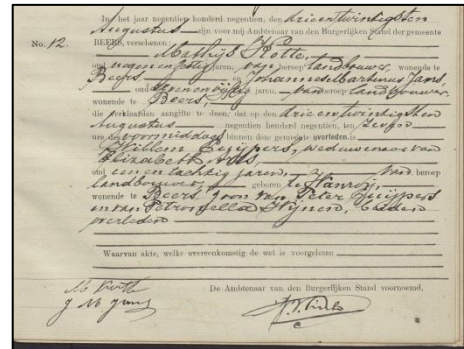 In het jaar negentien honderd negentien, den drieentwintigsten
Augustus zijn voor mij Ambtenaar van den Burgerlijken Stand der gemeente
No. 12. BEERS, verschenen:
Mathijs
oud negenenzestig jaren, van beroep landbouwer, wonende te
Beers en Johannes Martinus Jans,
oud jaren, van beroep landbouwer,
wonende te Beers,
die verklaarden aangifte te doen, dat op den drieentwintigsten
Augustus negentien honderd negentien, ten
ure des voormiddags binnen deze gemeente overleden is
Willem Cuijpers, weduwenaar van
Elizabeth
oud eenentachtig jaren, van beroep
landbouwer, geboren te
wonende te Beers zoon van Peter Cuijpers
en van Petronella beiden
overleden
Waarvan akte, welke overeenkomstig de wet is voorgelezen
De Ambtenaar van den Burgerlijken Stand voornoemd,